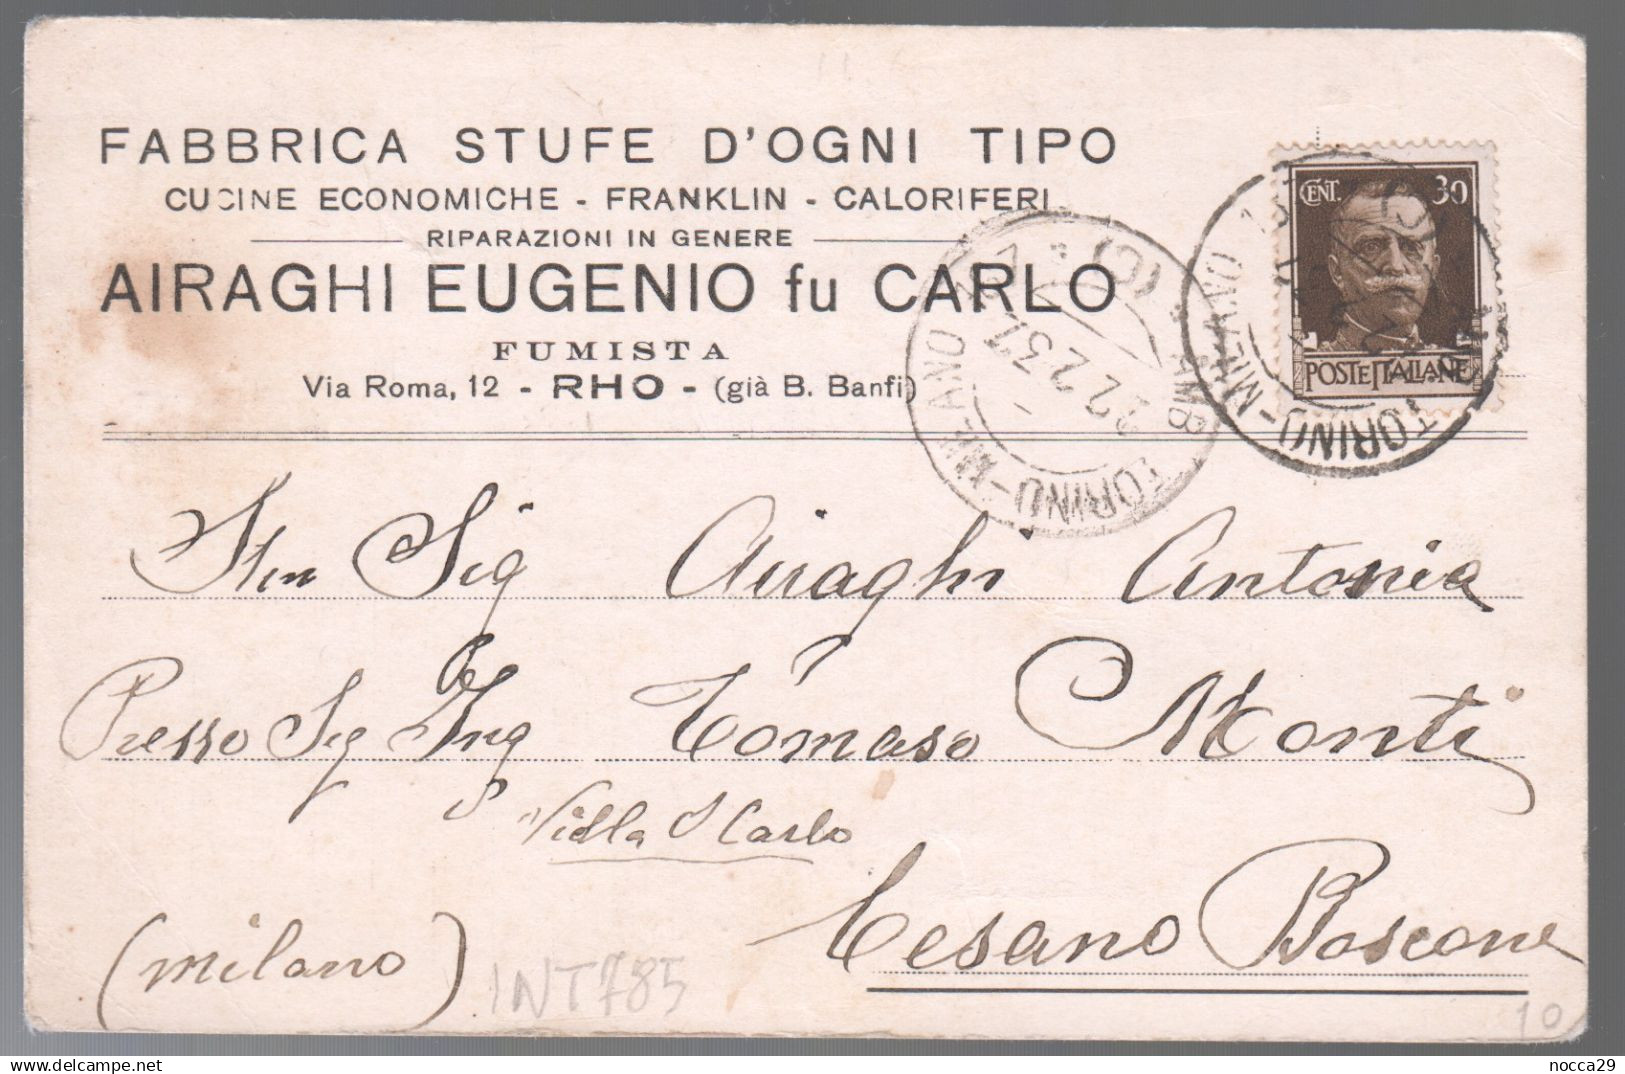 FABBRICA STUFE D'OGNI TIPO
CUCINE ECONOMICHE - FRANKLIN - CALORIFERI
RIPARAZIONI IN GENERE
AIRAGHI EUGENIO fu CARLO
FUMISTA
Via Roma, 12 - RHO - (già B. Banfi)
CENT. 30
POSTE ITALIANE
AMB. TORINO-MILANO 157 (C)
22 2 37
TORINO-MILANO
Sig Airaghi Antonia
Presso Sig Ing Tomaso Monti
Villa S Carlo
Cesano Boscone
(Milano)
INT785
10
Delcampe.net
nocca29